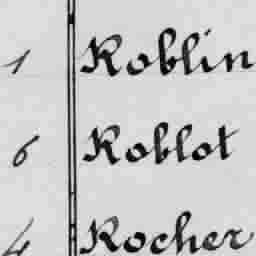 1 Roblin
6 Roblot
4 Rocher